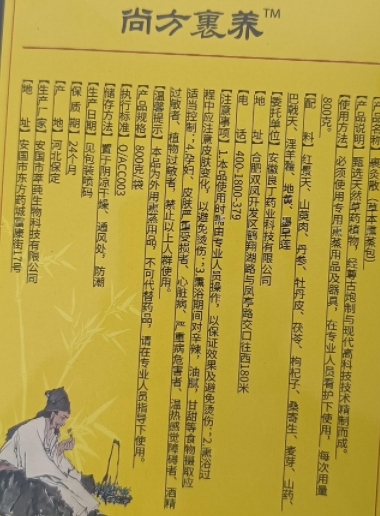 尚方裹养™
【产品名称】熏灸散（草本熏蒸包）
【产品说明】甄选天然草药植物，经蒙古炮制与现代高科技技术精制而成。
【使用方法】必须使用专用熏蒸用品及器具，在专业人员看护下使用，每次用量
800克。
【配 料】红景天、山萸肉、丹参、牡丹皮、茯苓、枸杞子、桑寄生、麦芽、山药、
巴戟天、淫羊藿、地黄、
【委托单位】安徽良丁药业科技有限公司
【地 址】合肥双凤开发区鹤翔湖路与凤亭路交口往西180米
【电 话】400-1800-379
【注意事项】1.本品使用时需由专业人员操作，以保证效果及避免烫伤；2.熏浴过
程中应注意皮肤变化，以避免烫伤；3.熏浴期间对辛辣，油腻，甘甜等食物摄取应
适当控制；4.孕妇、皮肤严重受损者、心脏病、严重病危害者、温热感觉障碍者、酒精
过敏者、植物过敏者，禁止以上人群使用。
【温馨提示】本品为外用熏蒸用品，不可代替药品，请在专业人员指导下使用。
【产品规格】800克/袋
【执行标准】Q/ACC003
【储存方法】置于阴凉干燥、通风处，防潮
【生产日期】见包装喷码
【保 质 期】24个月
【产 地】河北保定
【生产厂家】安国市萃莼生物科技有限公司
【地 址】安国市东方药城富康街17号